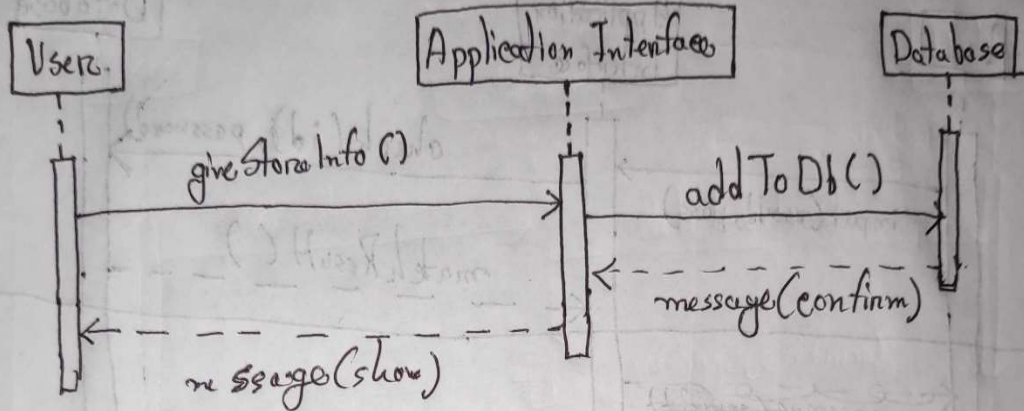 User
Application Interface
Database
giveStoreInfo()
addToDb()
message(confirm)
message(show)